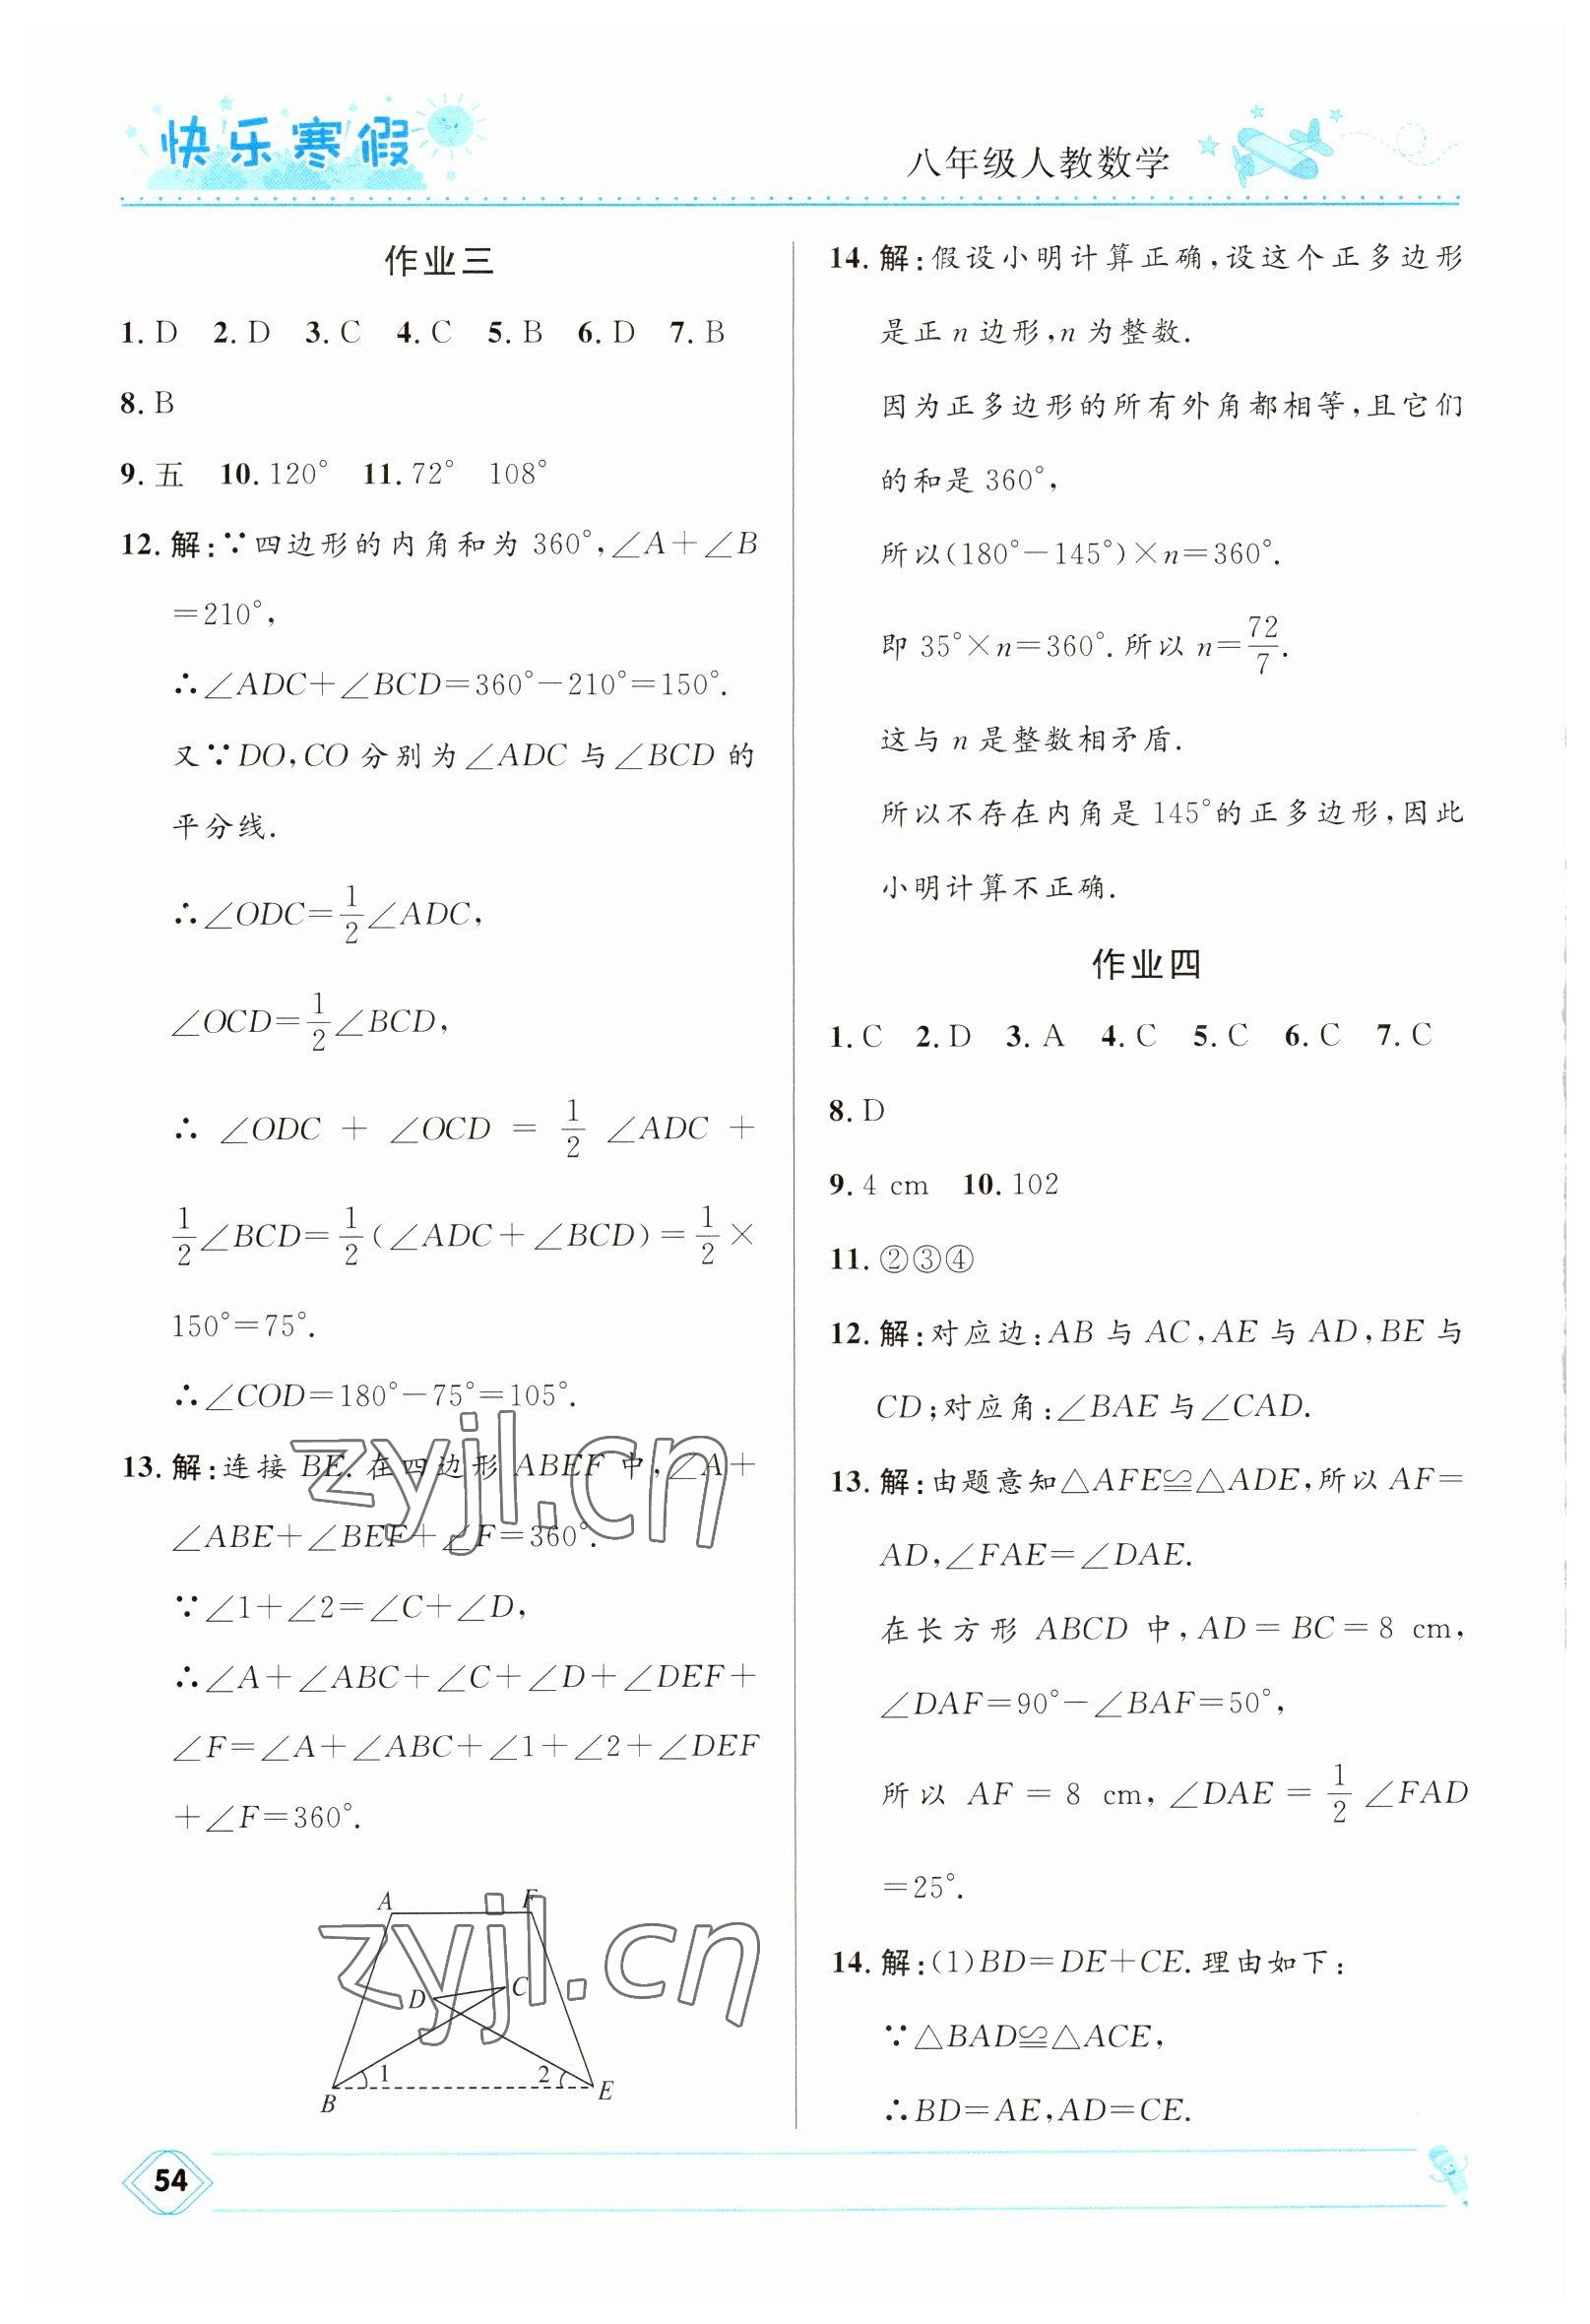 快乐寒假
八年级人教数学
作业三
1. D 2. D 3. C 4. C 5. B 6. D 7. B
8. B
9. 五 10. 120° 11. 72° 108°
12. 解:∵四边形的内角和为 360°,∠A+∠B
=210°,
∴∠ADC+∠BCD=360°-210°=150°.
又∵DO,CO 分别为∠ADC 与∠BCD 的
平分线.
∴∠ODC=1/2∠ADC,
∠OCD=1/2∠BCD,
∴ ∠ODC + ∠OCD = 1/2 ∠ADC +
1/2∠BCD=1/2(∠ADC+∠BCD)=1/2×
150°=75°.
∴∠COD=180°-75°=105°.
13. 解:连接 BE. 在四边形 ABEF 中,∠A+
∠ABE+∠BEF+∠F=360°.
∵∠1+∠2=∠C+∠D,
∴∠A+∠ABC+∠C+∠D+∠DEF+
∠F=∠A+∠ABC+∠1+∠2+∠DEF
+∠F=360°.
A F
D C
1 2
B E
zyjl.cn
zyjl.cn
14. 解:假设小明计算正确,设这个正多边形
是正 n 边形,n 为整数.
因为正多边形的所有外角都相等,且它们
的和是 360°,
所以(180°-145°)×n=360°.
即 35°×n=360°. 所以 n=72/7.
这与 n 是整数相矛盾.
所以不存在内角是 145°的正多边形,因此
小明计算不正确.
作业四
1. C 2. D 3. A 4. C 5. C 6. C 7. C
8. D
9. 4 cm 10. 102
11. ②③④
12. 解:对应边:AB 与 AC,AE 与 AD,BE 与
CD;对应角:∠BAE 与∠CAD.
13. 解:由题意知△AFE≌△ADE,所以 AF=
AD,∠FAE=∠DAE.
在长方形 ABCD 中,AD=BC=8 cm,
∠DAF=90°-∠BAF=50°,
所以 AF = 8 cm, ∠DAE = 1/2 ∠FAD
=25°.
14. 解:(1)BD=DE+CE. 理由如下:
∵△BAD≌△ACE,
∴BD=AE,AD=CE.
54